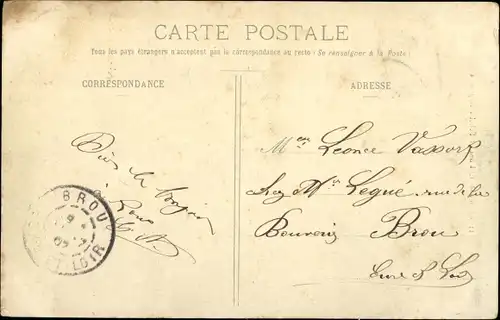 CARTE POSTALE
Tous les pays étrangers n'acceptent pas la correspondance au recto (Se renseigner à la Poste)
CORRESPONDANCE
ADRESSE
Bien le bonjour
à tous
BROU
EURE ET LOIR
Leonce Vassort
Chez Mr Legué rue de la
Bouverie Brou
Eure & Loir